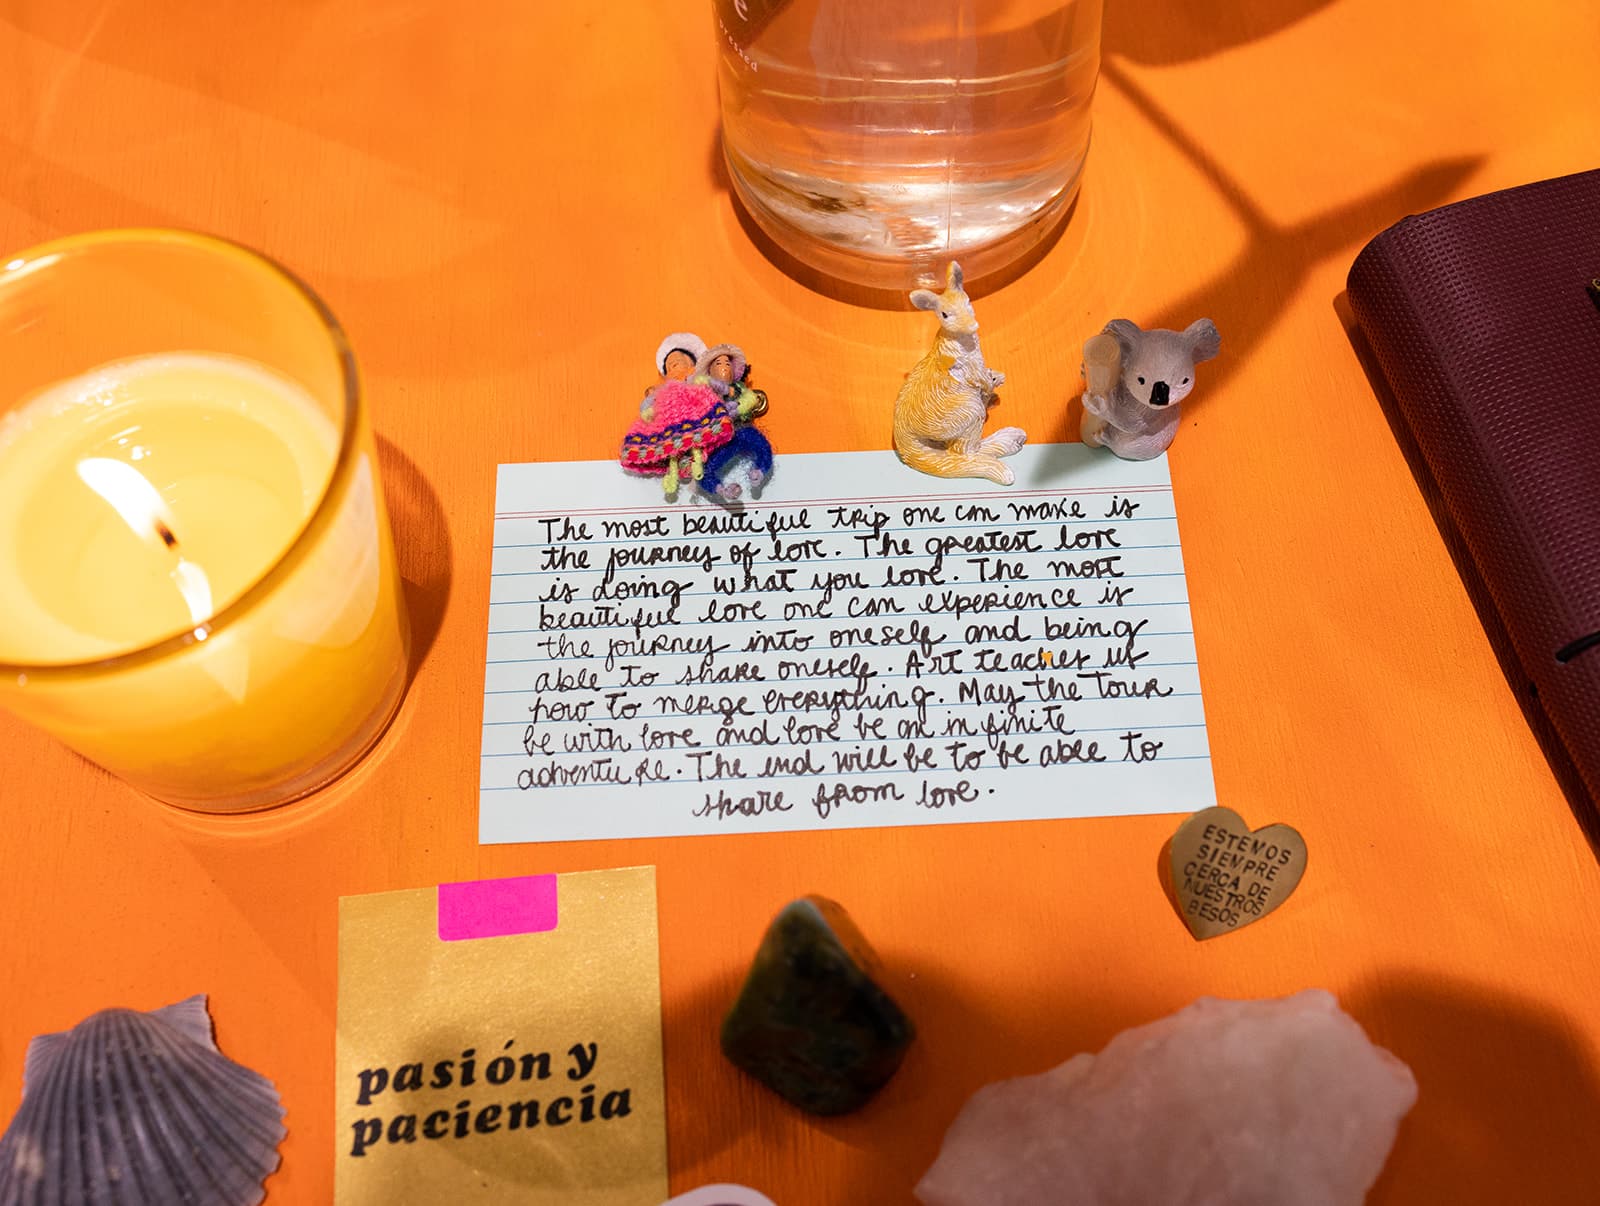 pressed
The most beautiful trip one can make is
the journey of love. The greatest love
is doing what you love. The most
beautiful love one can experience is
the journey into oneself and being
able to share oneself. Art teaches us
how to merge everything. May the Tour
be with love and love be an infinite
adventure. The end will be to be able to
share from love.
ESTEMOS
SIEMPRE
CERCA DE
NUESTROS
BESOS
pasión y
paciencia